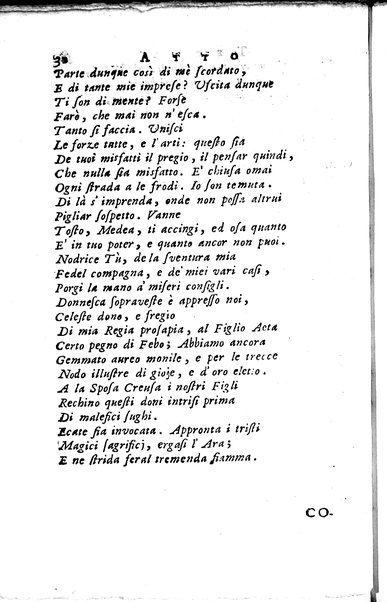 30 ATTO
Parte dunque così di mè ſcordato,
E di tante mie impreſe? Uſcita dunque
Ti ſon di mente? Forſe
Farò, che mai non n'eſca.
Tanto ſi faccia. Uniſci
Le forze tutte, e l'arti: queſto ſia
De tuoi misfatti il pregio, il penſar quindi,
Che nulla ſia misfatto. E' chiuſa omai
Ogni ſtrada a le frodi. Io ſon temuta.
Di là s'imprenda, onde non poſſa altrui
Pigliar ſoſpetto. Vanne
Toſto, Medea, ti accingi, ed oſa quanto
E' in tuo poter, e quanto ancor non puoi.
Nodrice Tù, de la ſventura mia
Fedel compagna, e de' miei vari caſi,
Porgi la mano a' miſeri conſigli.
Donneſca ſopraveſte è appreſſo noi,
Celeſte dono, e fregio
Di mia Regia proſapia, al Figlio Aeta
Certo pegno di Febo; Abbiamo ancora
Gemmato aureo monile, e per le trecce
Nodo illuſtre di gioje, e d'oro eletto.
A la Spoſa Creuſa i noſtri Figli
Rechino queſti doni intriſi prima
Di malefici ſughi.
Ecate ſia invocata. Appronta i triſti
Magici ſagrificj, ergaſi l'Ara;
E ne ſtrida feral tremenda fiamma.
CO-